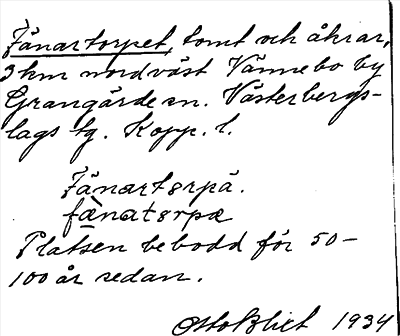 Fänartorpet, tomt och åkrar,
3 km nordväst Vännebo by
Grangärde sn. Västerbergs-
lags tg. Kopp. l.
Fänartorpä.
fænatorpæ
Platsen bebodd för 50-
100 år sedan.
Otto Blixt 1934